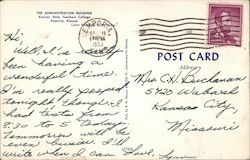 THE ADMINISTRATION BUILDING
Kansas State Teachers College
Emporia, Kansas
EMPORIA
POST CARD
Hi,
Well, I've really
been having a
wonderful time.
I'm really pooped
tonight, though. I
had tests from
8:30 to
Tomorrow will be
even busier. I'll
write when I can. Love,
Mrs C. H. Buchanan
5420 Wabash
Kansas City,
Missouri